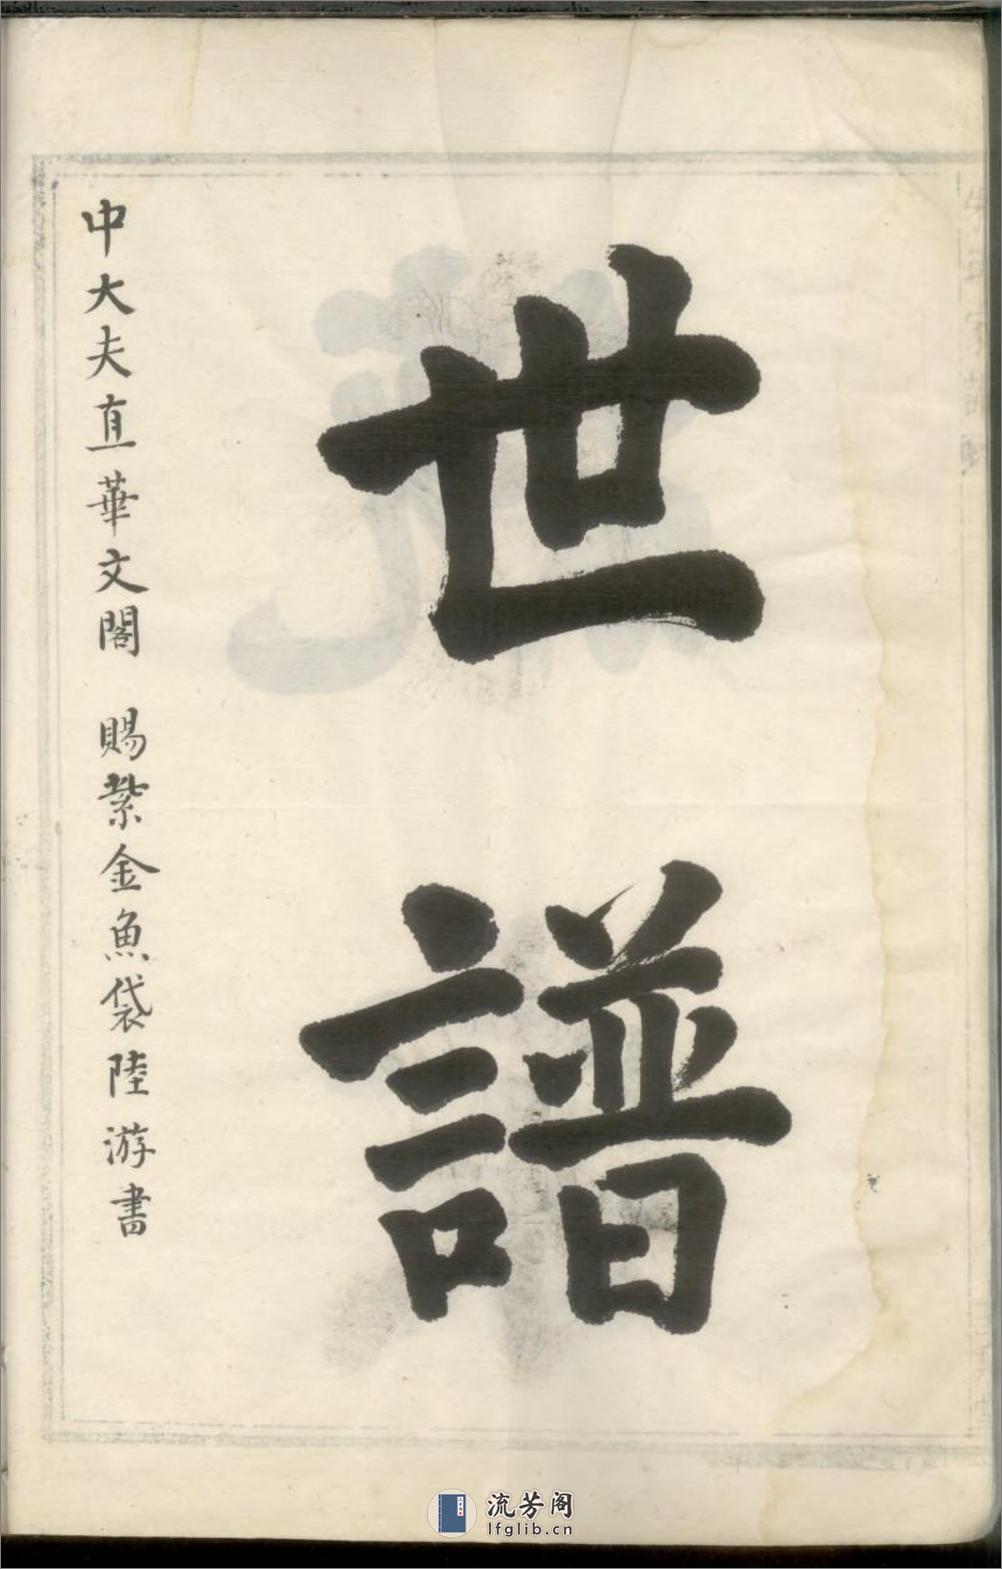 世譜
中大夫直華文閣 賜紫金魚袋陸游書
流芳阁
lfglib.cn